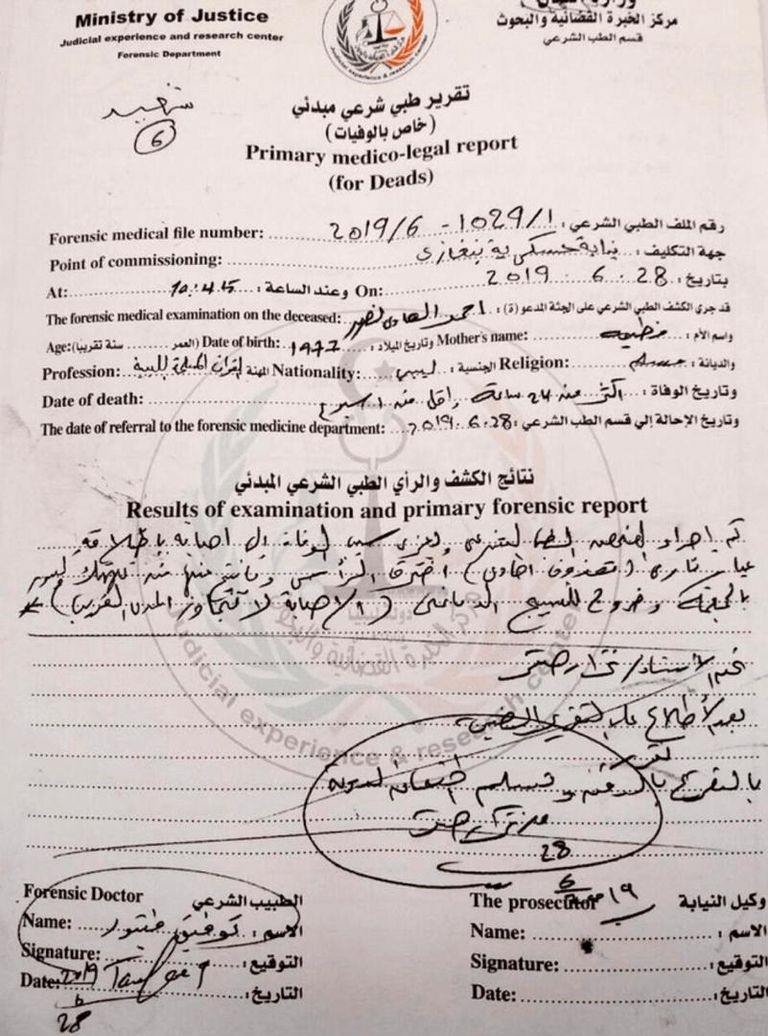 Ministry of Justice
Judicial experience and research center
Forensic Department
مركز الخبرة القضائية والبحوث
قسم الطب الشرعي
Judicial experience & research center
شهيد
6
تقرير طبي شرعي مبدئي
(خاص بالوفيات)
Primary medico-legal report
(for Deads)
Forensic medical file number: 2019/6 - 1029/1 رقم الملف الطبي الشرعي:
Point of commissioning: نيابة عسكرية بنغازي جهة التكليف:
At: 10:45 وعند الساعة: On: 2019 . 6 . 28 بتاريخ:
The forensic medical examination on the deceased: احمد الهادي قد جرى الكشف الطبي الشرعي على الجثة المدعو (ة):
Age: (العمر سنة تقريبا) Date of birth: 1977 وتاريخ الميلاد: Mother's name: واسم الأم:
Profession: المهنة: القوات المسلحة الليبية Nationality: ليبي الجنسية: Religion: مسلم والديانة:
Date of death: اكثر من 24 ساعة واقل من اسبوع وتاريخ الوفاة:
The date of referral to the forensic medicine department: 2019.6.28 وتاريخ الإحالة إلى قسم الطب الشرعي:
نتائج الكشف والرأي الطبي الشرعي المبدئي
Results of examination and primary forensic report
تم اجراء الفحص الطبي الشرعي وتعزى سبب الوفاة الى اصابة باطلاقة
عيار ناري (مقذوف احادي) اخترق الرأس
بالجمجمة وخروج للنسيج الدماغي (الإصابة لا تتجاوز المدى القريب)
دولة ليبيا
مركز الخبرة القضائية والبحوث
Judicial experience & research center
بعد الأطلاع على التقرير الطبي
نقرر
بالتصريح بالدفن وتسليم الجثمان لذويه
28
6
19
Forensic Doctor الطبيب الشرعي
Name: توفيق الاسم:
Signature: التوقيع:
Date: 2019 التاريخ:
6
28
The prosecutor وكيل النيابة
Name: الاسم:
Signature: التوقيع:
Date: التاريخ: